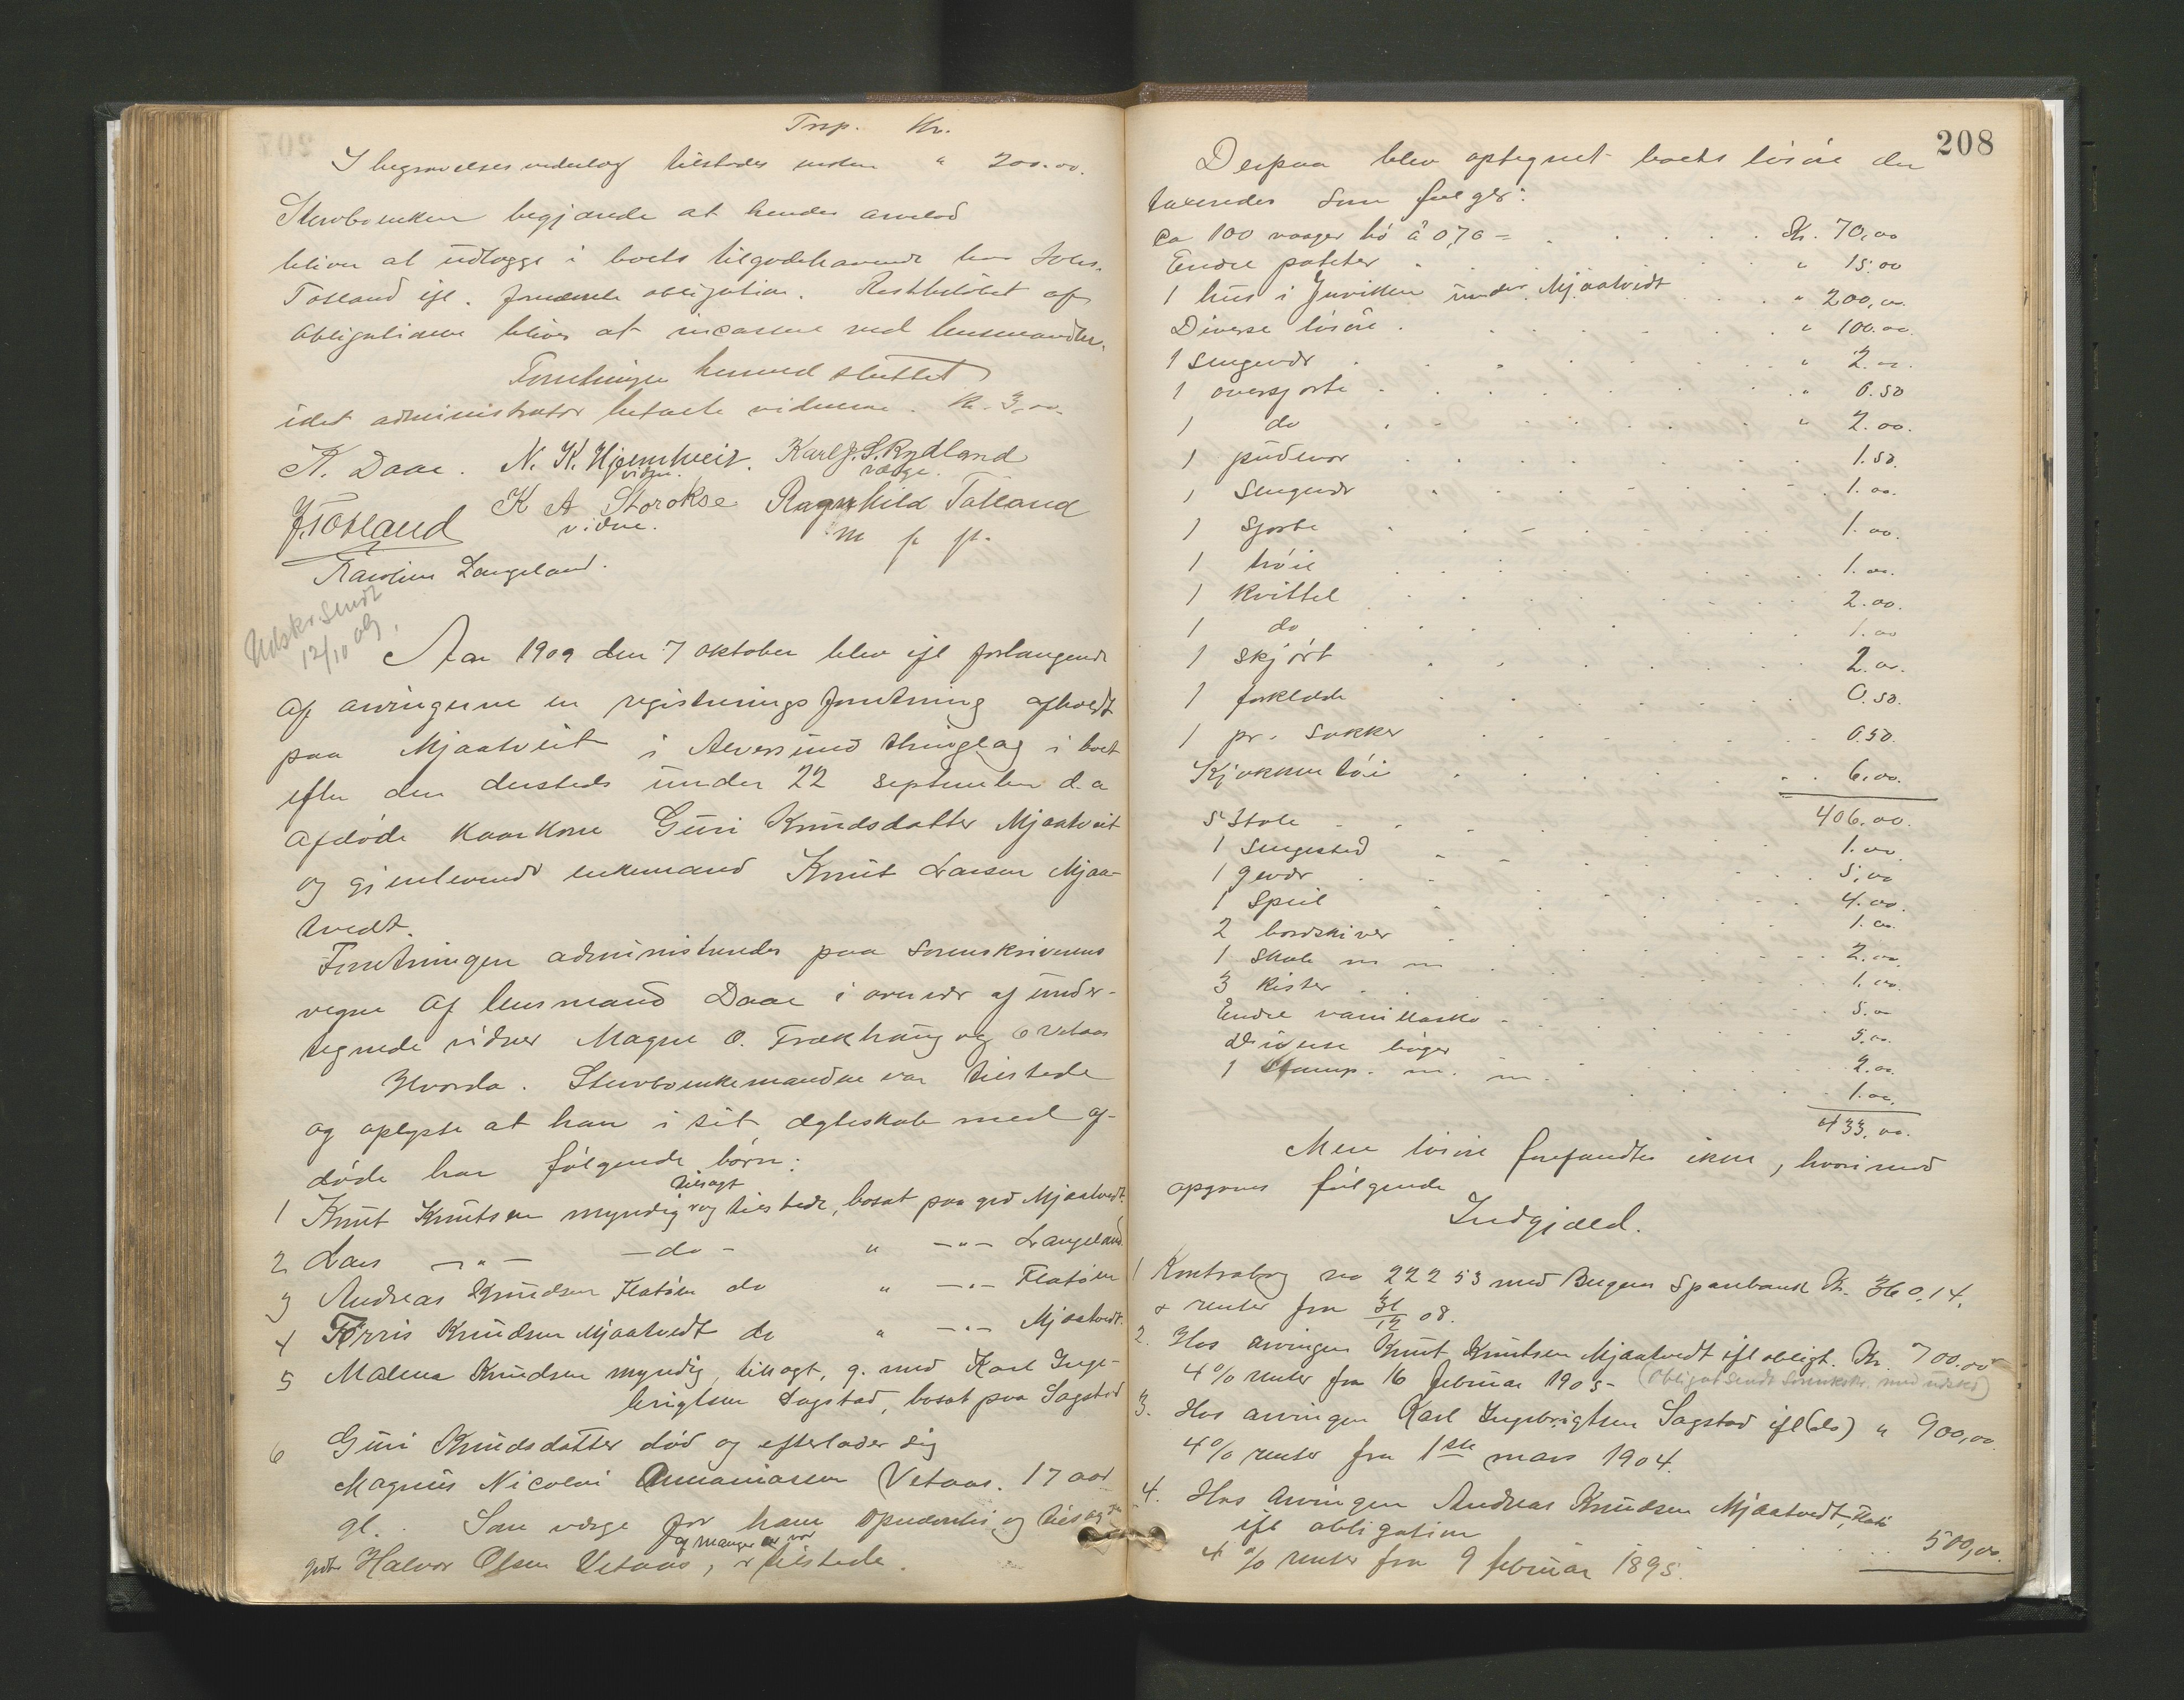 Trsp. Kr.
I begravelses vederlag tilstodes enken " 200.00.
Stervboenken begjærede at hendes arvelod
bliver at udlægge i boets tilgodehavende hos Johs.
Totland ifl. forannævnte obligation. Restbeløbet af
obligationen bliver at incassere ved lensmanden.
Forretningen hermed sluttet
idet administrator betalte vidnerne. Kr. 3,00.
K. Daae. N. K. Hjemtveit. Karl J. S. Rydland
vidne. værge.
J Totland K A Storokse Ragnhild Totland
vidne. m f p.
Karoline Langeland.
Udskr. sendt
12/10 09.
Aar 1909 den 7 oktober blev ifl forlangende
af arvingerne en registreringsforretning afholdt
paa Mjaatveit i Alversund thinglag i boet
efter den dersteds under 22 september d. a
afdøde kaarkone Guri Knudsdatter Mjaatveit
og gjenlevende enkemand Knut Larsen Mjaa-
tvedt.
Forretningen administreredes paa sorenskriverens
vegne af lensmand Daae i overvær af under-
tegnede vidner Magne O. Trækhaug og O Vetaas
Hvorda. Stervboenkemanden var tilstede
og oplyste at han i sit ægteskab med af-
døde har følgende børn:
tilsagt
1 Knut Knutsen myndig og tilstede, bosat paa grd Mjaatvedt.
2 Lars —"— —do— " —"— Langeland.
3 Andreas Knudsen Flatøen do " —"— Flatøen
4 Førris Knudsen Mjaatvedt do " —"— Mjaatvedt.
5 Malena Knudsen myndig, tilsagt, g. med Karl Inge-
brigtsen Sagstad, bosat paa Sagstad
6 Guri Knudsdatter død og efterlader sig
Magnus Nicolai Annaniasen Vetaas. 17 aar
gl. Som værge for ham opnævntes og tilsagt
af Manger var
grdbr Halvor Olsen Vetaas, tilstede.
208
Derpaa blev optegnet boets løsøre der
taxeredes som følger:
Ca 100 vaager hø á 0,70 = Kr. 70,00
Endel poteter " 15.00
1 hus i Indviken under Mjaatvedt " 200,00.
Diverse løsøre " 100.00.
1 sengevær " 2.00.
1 oversjorte " 0.50
1 do " 2.00.
1 pudevor 1.50.
1 sengevær 1.00.
1 sjorte 1.00.
1 trøie 1.00.
1 kvittel 2.00.
1 do 1.00
1 skjørt 2.00.
1 forklæde 0.50.
1 pr. sokker 0.50.
Kjøkkentøi 6.00.
406.00.
5 Stole 1.00.
1 sengested 5,00
1 gevær 4.00.
1 speil 1.00.
2 bordskiver 2.00.
1 skab m m 1.00.
3 kister 5.00
Endel vanillasko 5.00.
Diverse bøger 2.00.
1 Stamp. m. m. 1.00.
433.00.
Mere løsøre forefandtes ikke, hvorimod
opgaves følgende
Indgjæld.
1 Kontrabog no 22253 med Bergens Sparebank Kr. 360,14.
+ renter fra 31/12 08.
2. Hos arvingen Knut Knutsen Mjaatvedt ifl obligt. Kr. 700.00
4% renter fra 16 februar 1905 - (Obligat sendt Sorenskr. med udskr)
3. Hos arvingen Karl Ingebrigtsen Sagstad ifl (do) " 900,00.
4% renter fra 1ste mars 1904.
4. Hos arvingen Andreas Knudsen Mjaatvedt, Flatø
ifl obligation 500,00.
4% renter fra 9 februar 1895.